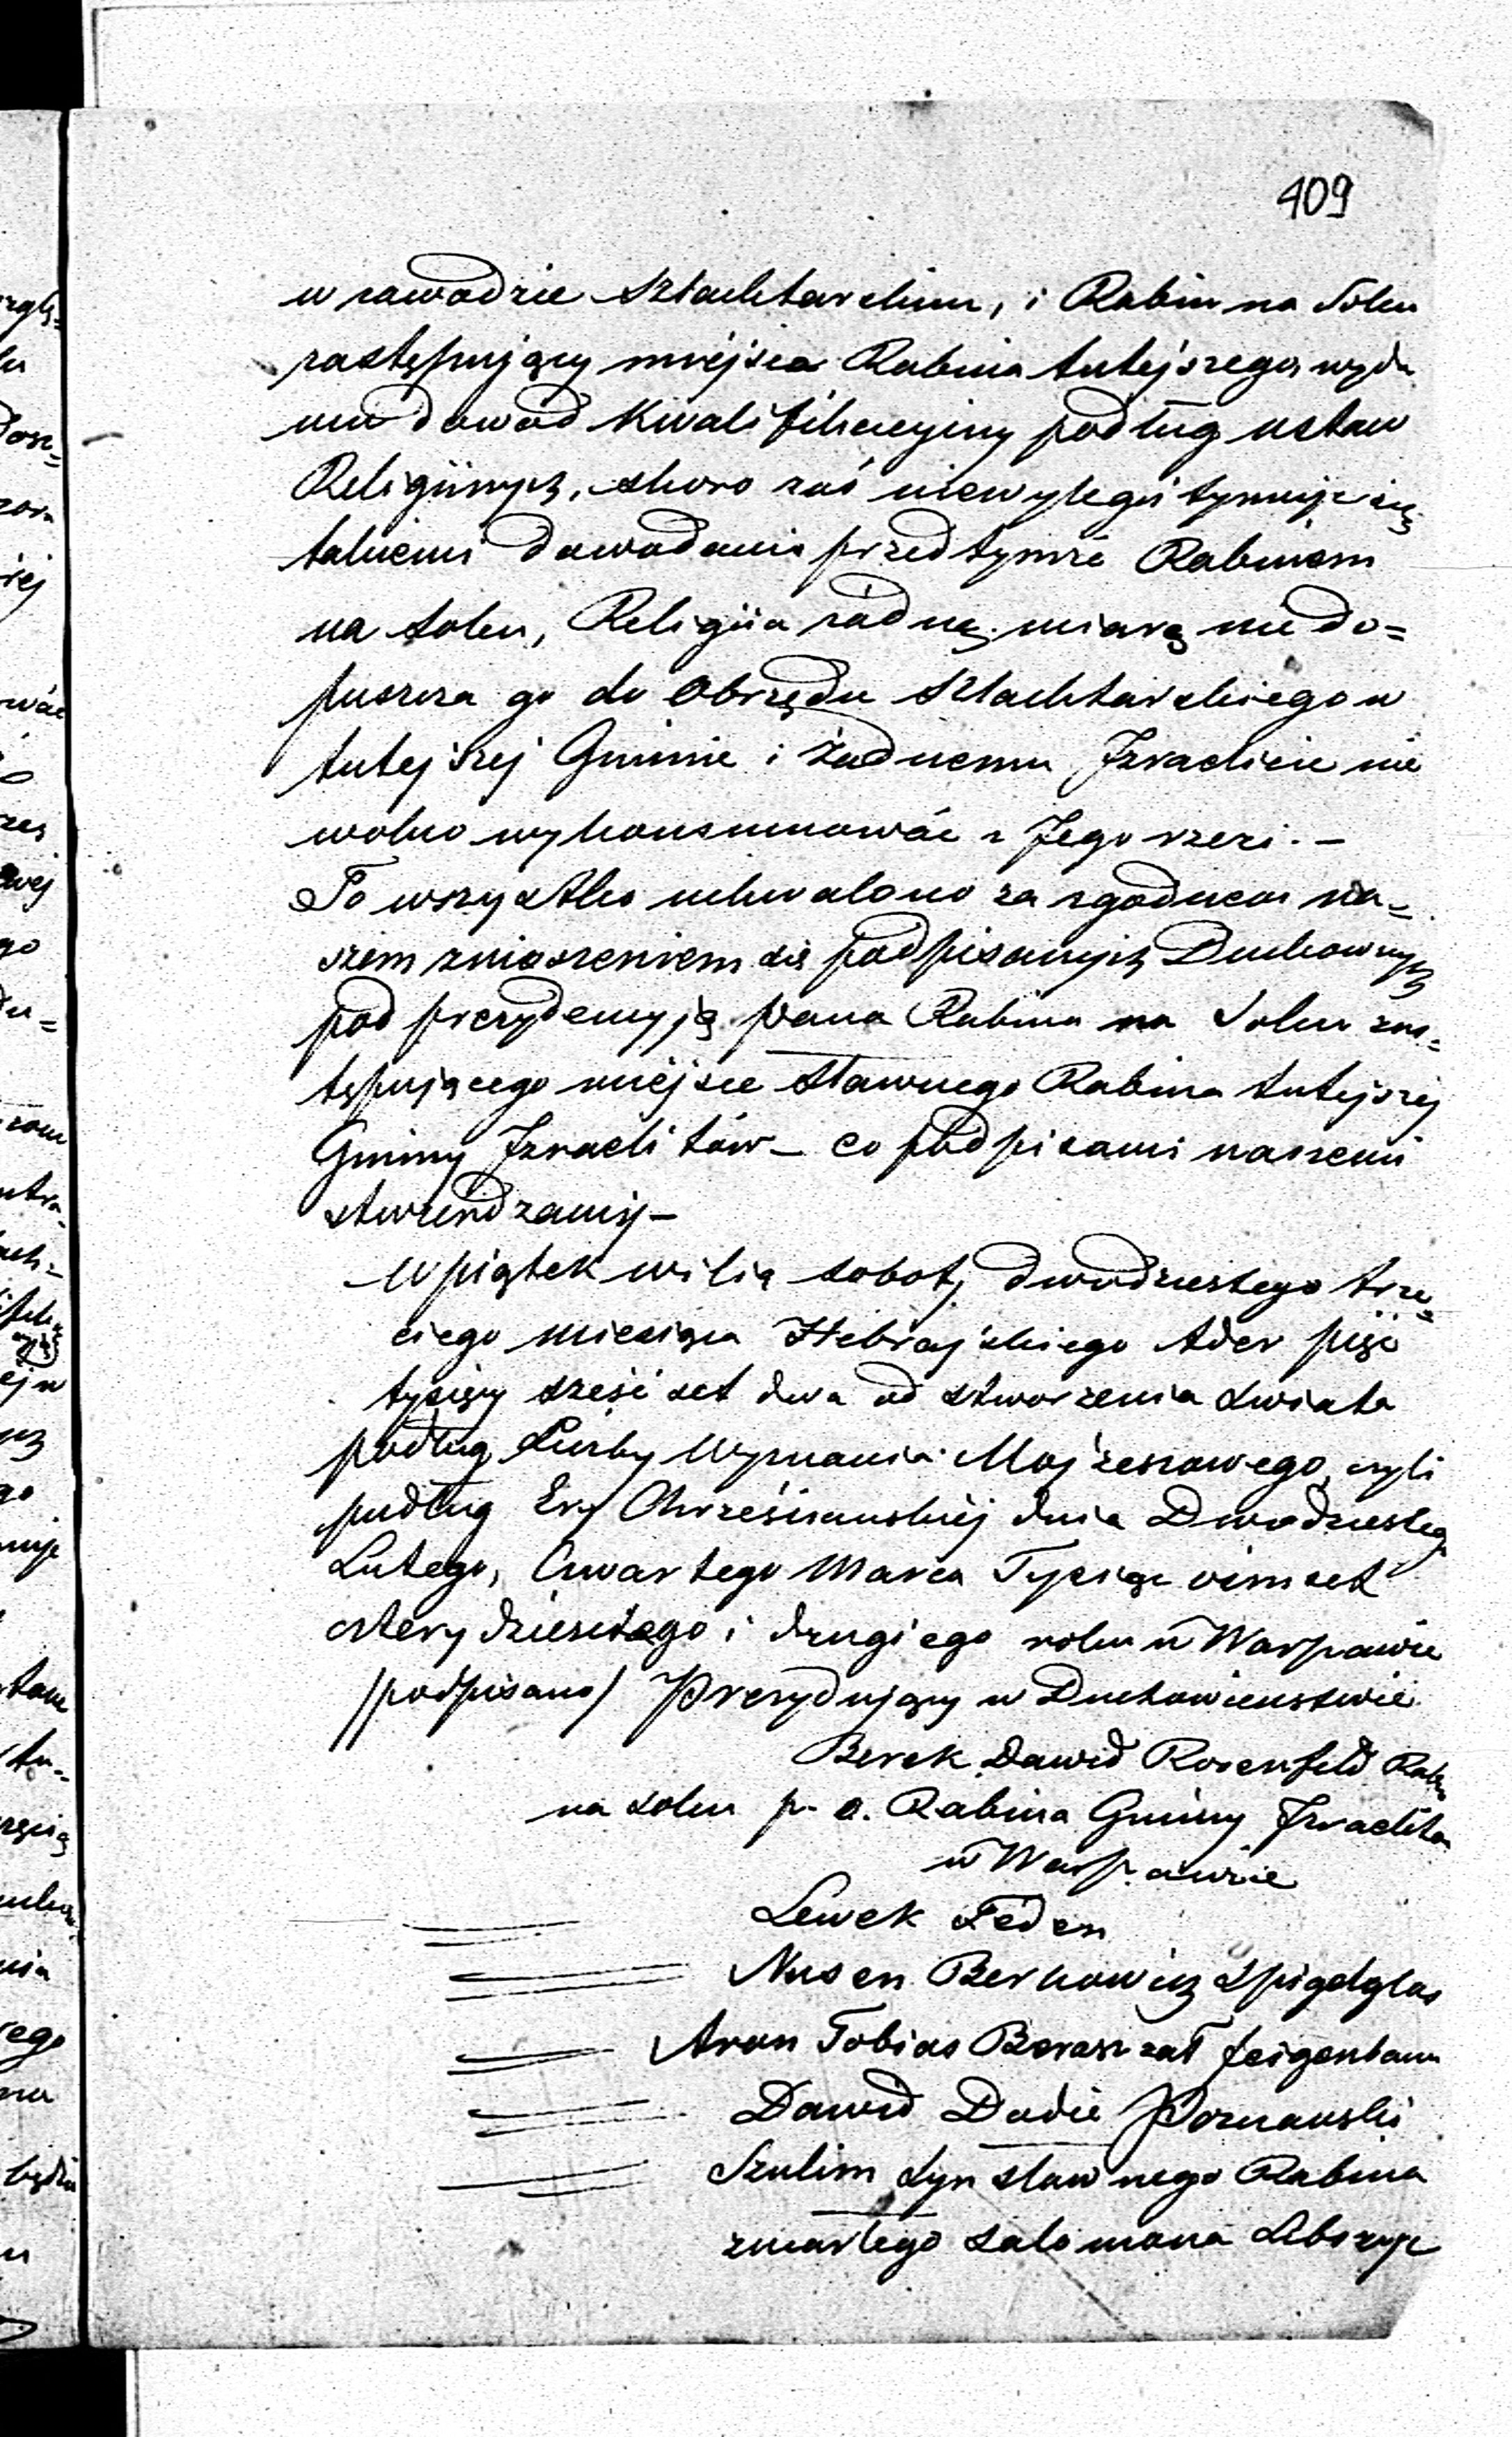 409
w zawodzie Szlachtarskim, i Rabin na Solcu
zastępujący miejsca Rabina tutejszego, wyda
mu dowód Kwalifikacyiny podług ustaw
Religiinych, skoro zaś niewylegitymuje się
takiemi dowodami przed tymże Rabinem
na Solcu, Religiia żadną miarą nie do=
puszcza go do Obrzędu Szlachtarskiego w
tutejszej Gminie i żadnemu Izraelicie nie
wolno wykonsumować z Jego rzezi. –
To wszystko uchwalono za zgodnem na=
szem znioszeniem się podpisanych Duchownych
pod prezydencyją pana Rabina na Solcu zas=
tępującego miejsce Sławnego Rabina tutejszej
Gminy Izraelitów – co podpisami naszemi
stwierdzamy –
W piątek wilią soboty dwudziestego trze=
ciego miesiąca Hebrajskiego Ader pięć
tysięcy sześć set dwa od stworzenia świata
podług Liczby Wyznania Mojżeszowego, czyli
podług Ery Chrześciańskiej dnia Dwudziestego
Lutego, Czwartego Marca Tysiąc ośmset
czterydziestego i drugiego roku w Warszawie
/podpisano/ Prezydujący w Duchowieństwie
Berek Dawid Rosenfeld Rabin
na Solcu p. o. Rabina Gminy Izraelitów
w Warszawie
Lewek Feden
Nusen Berkowicz Szpigelglas
Aron Tobias Feigenbaum
Dawid Dodie Poznanski
Szulim Syn sławnego Rabina
zmarłego Salomona